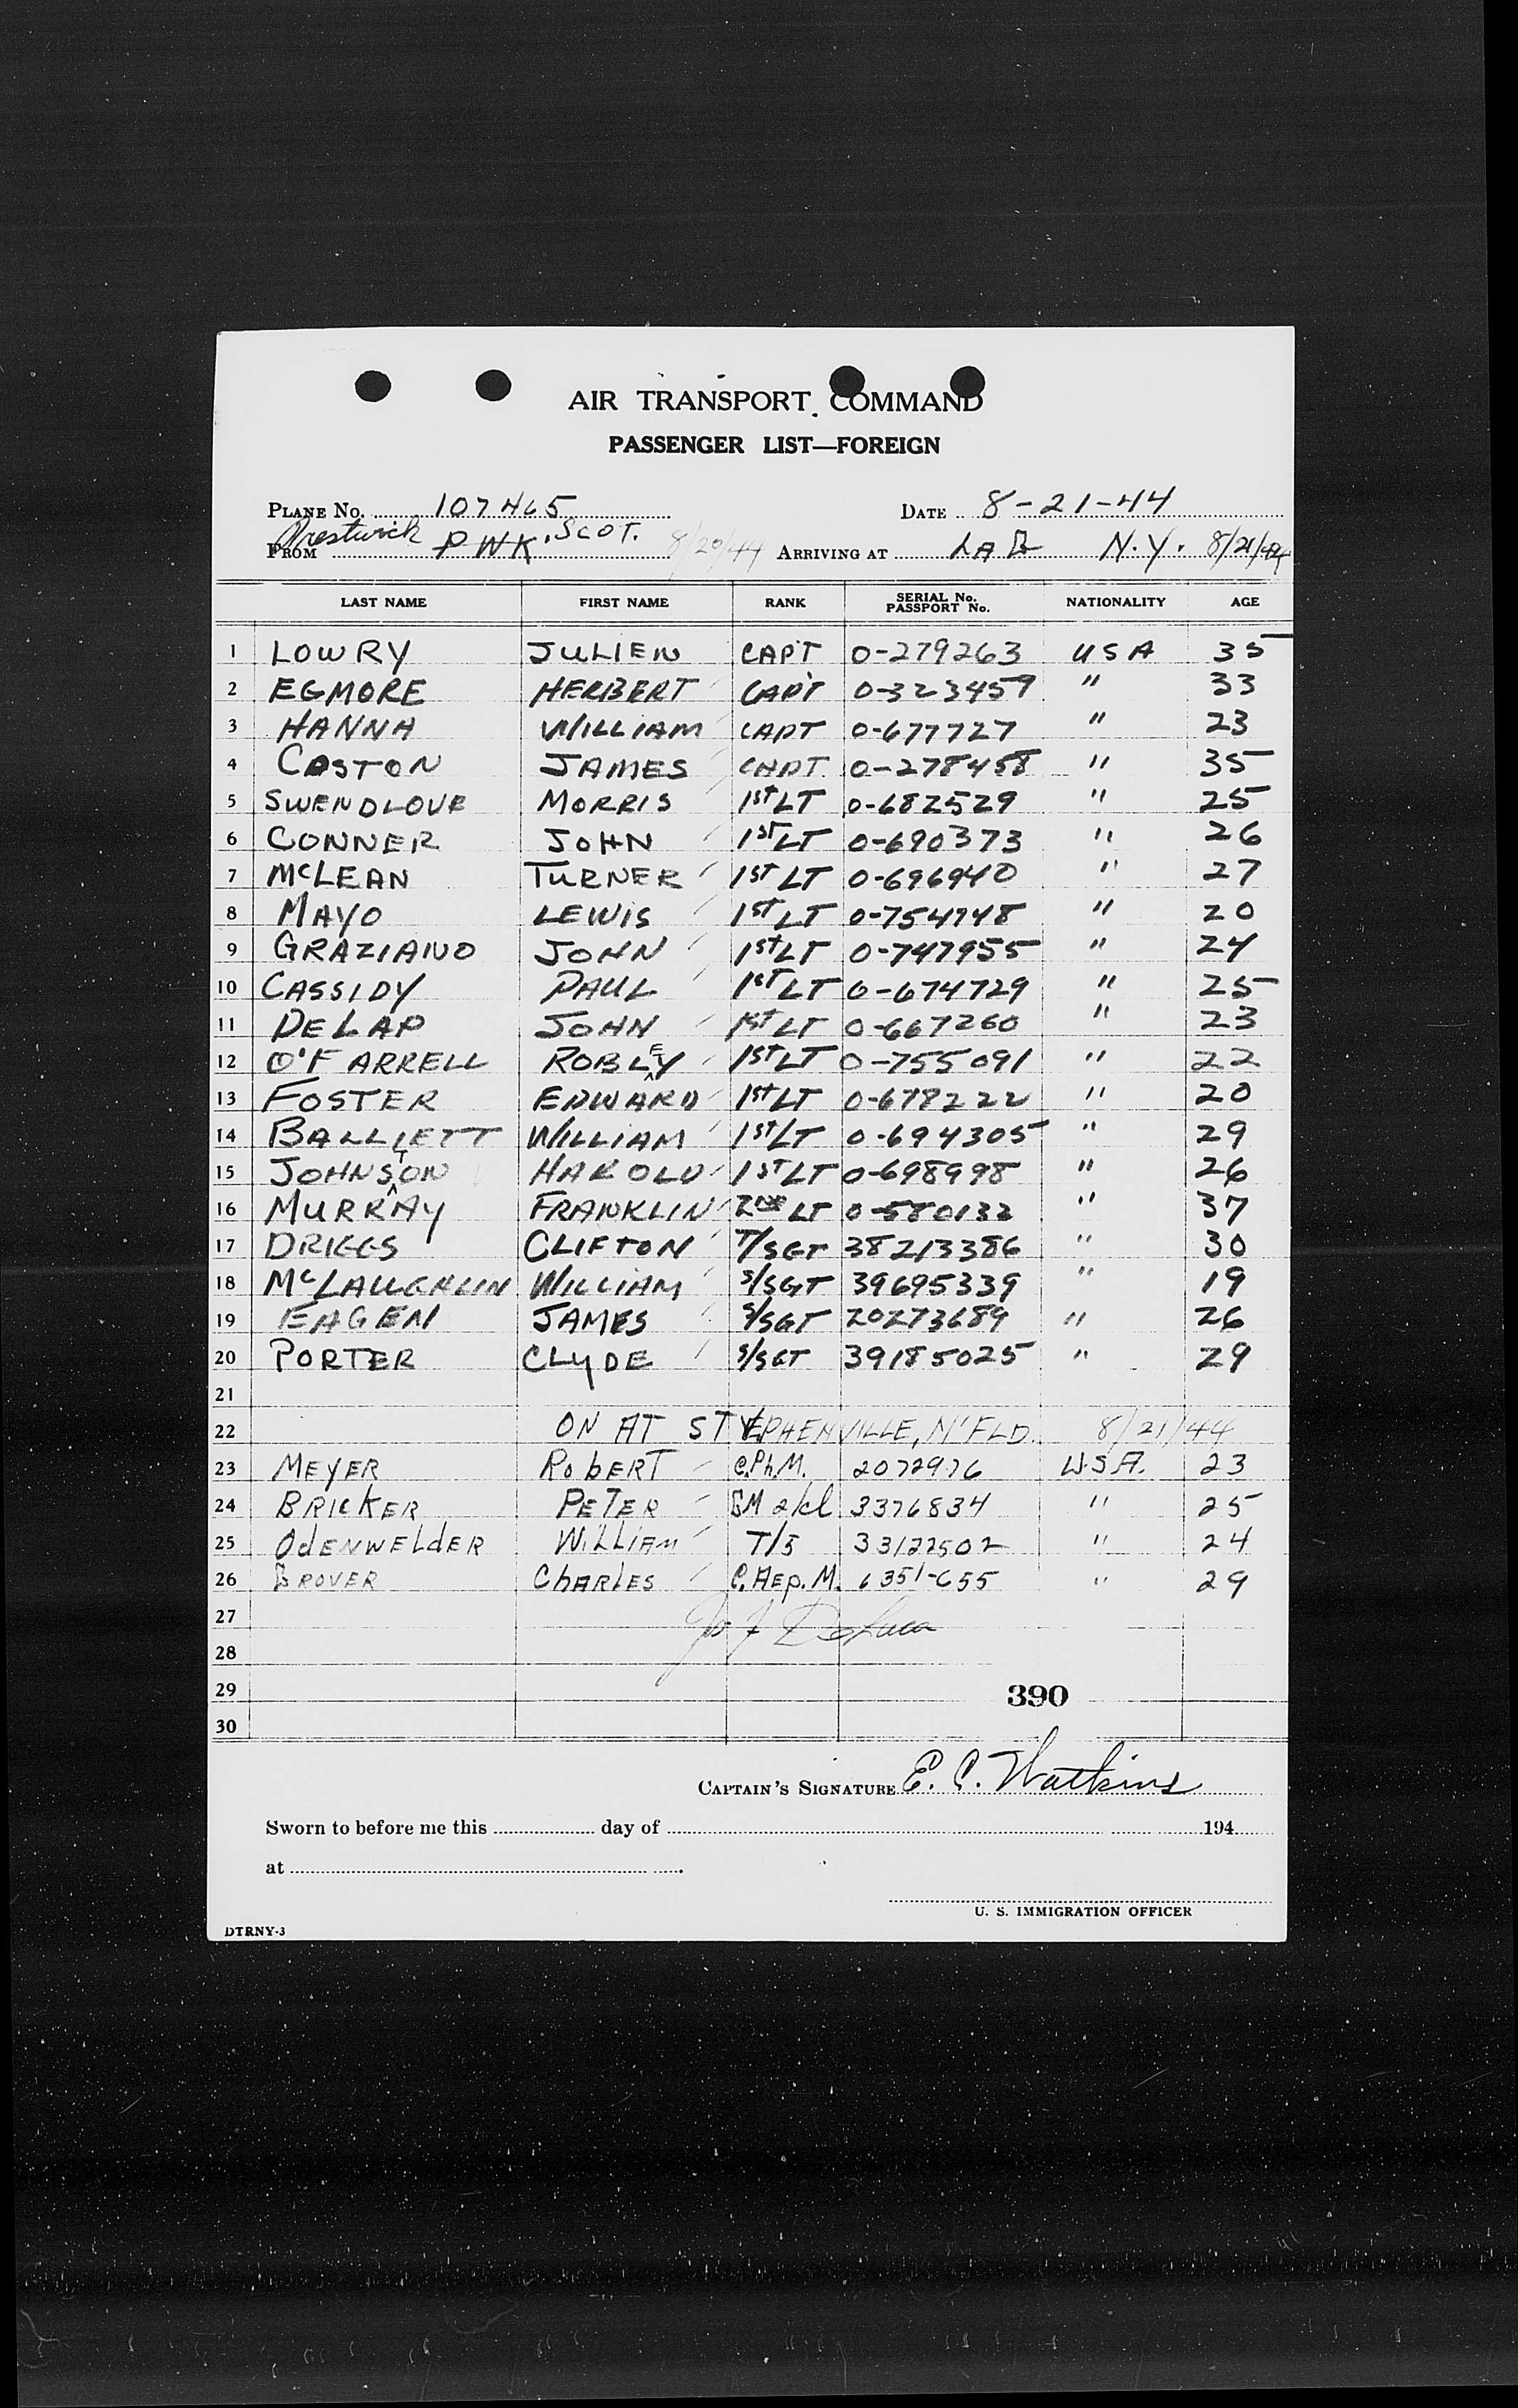 AIR TRANSPORT COMMAND
PASSENGER LIST—FOREIGN
PLANE No. 107465 DATE 8-21-44
FROM Prestwick PWK. SCOT. 8/20/44 ARRIVING AT LAG N.Y. 8/21/44
LAST NAME FIRST NAME RANK SERIAL No. PASSPORT No. NATIONALITY AGE
1 LOWRY JULIEN CAPT 0-279263 USA 35
2 EGMORE HERBERT CAPT 0-323459 " 33
3 HANNA WILLIAM CAPT 0-677727 " 23
4 CASTON JAMES CAPT. 0-278458 " 35
5 SWENDLOVE MORRIS 1st LT 0-682529 " 25
6 CONNER JOHN 1ST LT 0-690373 " 26
7 McLEAN TURNER 1ST LT 0-696940 " 27
8 MAYO LEWIS 1ST LT 0-754748 " 20
9 GRAZIANO JOHN 1st LT 0-747955 " 24
10 CASSIDY PAUL 1ST LT 0-674729 " 25
11 DELAP JOHN 1ST LT 0-667260 " 23
12 O'FARRELL ROBLEY 1ST LT 0-755091 " 22
13 FOSTER EDWARD 1st LT 0-678222 " 20
14 BALLIETT WILLIAM 1st LT 0-694305 " 29
15 JOHNSTON HAROLD 1ST LT 0-698998 " 26
16 MURRAY FRANKLIN 2ND LT 0-580132 " 37
17 DRIGGS CLIFTON T/SGT 38213386 " 30
18 McLAUGHLIN WILLIAM S/SGT 39695339 " 19
19 EAGEN JAMES S/SGT 20273689 " 26
20 PORTER CLYDE S/SGT 39185025 " 29
21
22 ON AT STEPHENVILLE, N'FLD. 8/21/44
23 MEYER RobERT C.Ph.M. 2072976 U.S.A. 23
24 BRICKER PETER SM 2/cl 3376834 " 25
25 OdENWELdER WILLIAM T/5 33122502 " 24
26 GROVER ChARLES C.AEp.M. 6351-655 " 29
27 Jos F DeLuca
28
29 390
30
CAPTAIN'S SIGNATURE E. C. Watkins
Sworn to before me this day of 194
at
U. S. IMMIGRATION OFFICER
DTRNY-3